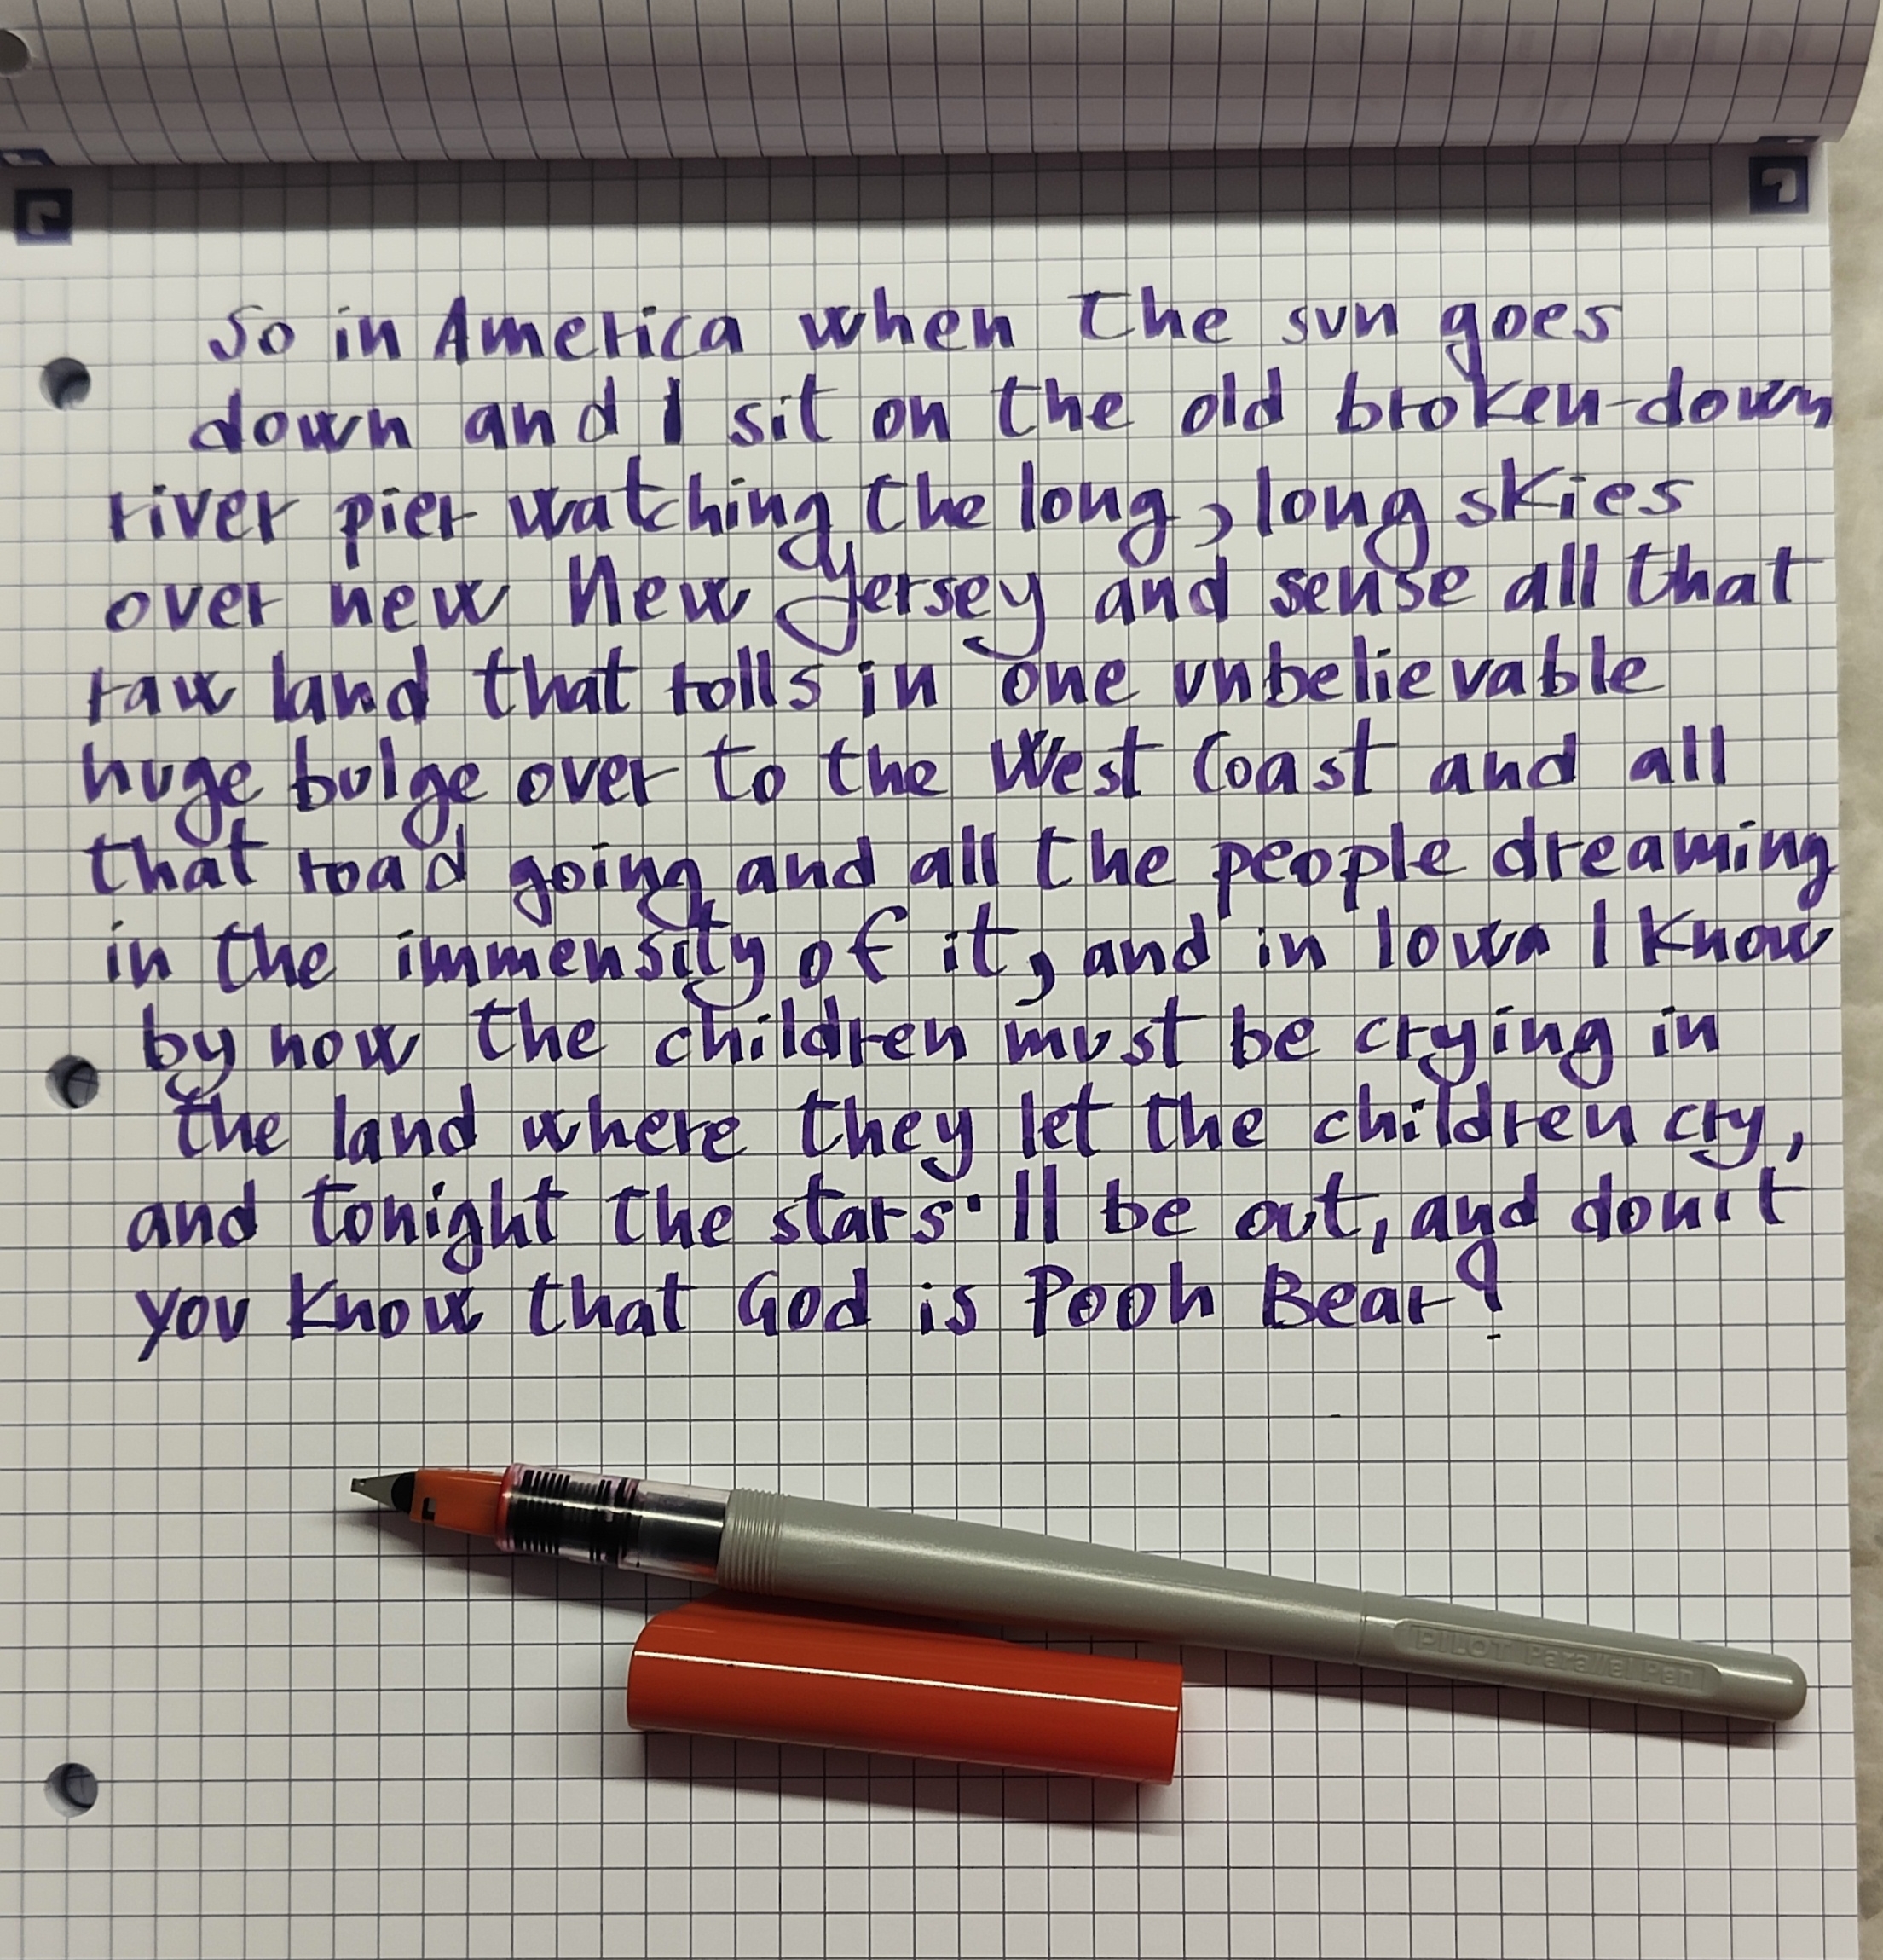 So in America when the sun goes
down and I sit on the old broken-down
river pier watching the long, long skies
over new New Jersey and sense all that
raw land that rolls in one unbelievable
huge bulge over to the West Coast and all
that road going and all the people dreaming
in the immensity of it, and in Iowa I know
by now the children must be crying in
the land where they let the children cry,
and tonight the stars'll be out, and don't
you know that God is Pooh Bear?
PILOT Parallel Pen